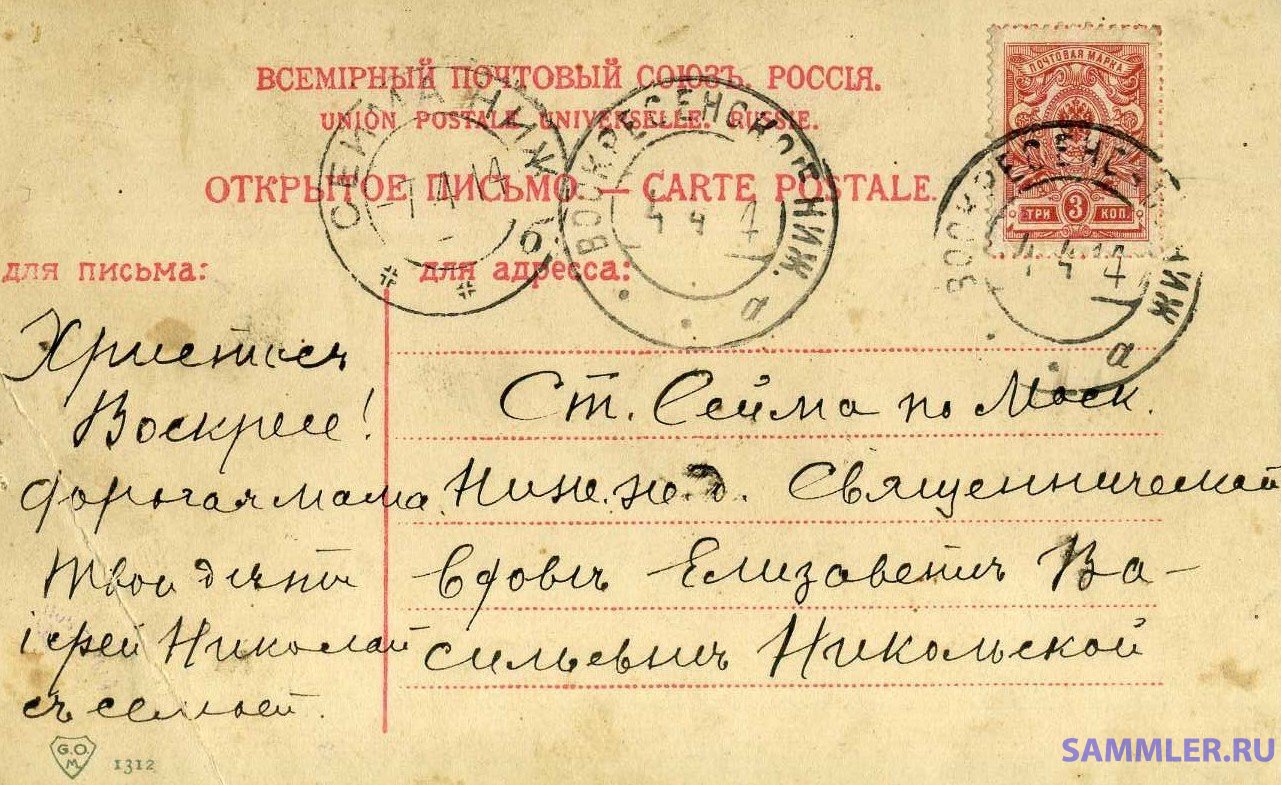 ВСЕМІРНЫЙ ПОЧТОВЫЙ СОЮЗЪ. РОССІЯ.
UNION POSTALE UNIVERSELLE. RUSSIE.
ОТКРЫТОЕ ПИСЬМО. — CARTE POSTALE.
ПОЧТОВАЯ МАРКА
ТРИ 3 КОП.
СЕЙМА НИЖ. б
-7 4 14
ВОСКРЕСЕНСКОЕ НИЖ. а
4 4 14
ВОСКРЕСЕНСКОЕ НИЖ. а
4 4 14
для письма:
Христосъ
Воскресе!
дорогая мама.
Твои дѣти
іерей Николай
съ семьей.
для адресса:
Ст. Сейма по Моск.
Ниж. ж. д. Священнической
вдовѣ Елизаветѣ Ва-
сильевнѣ Никольской
G.O.
M.
1312
SAMMLER.RU